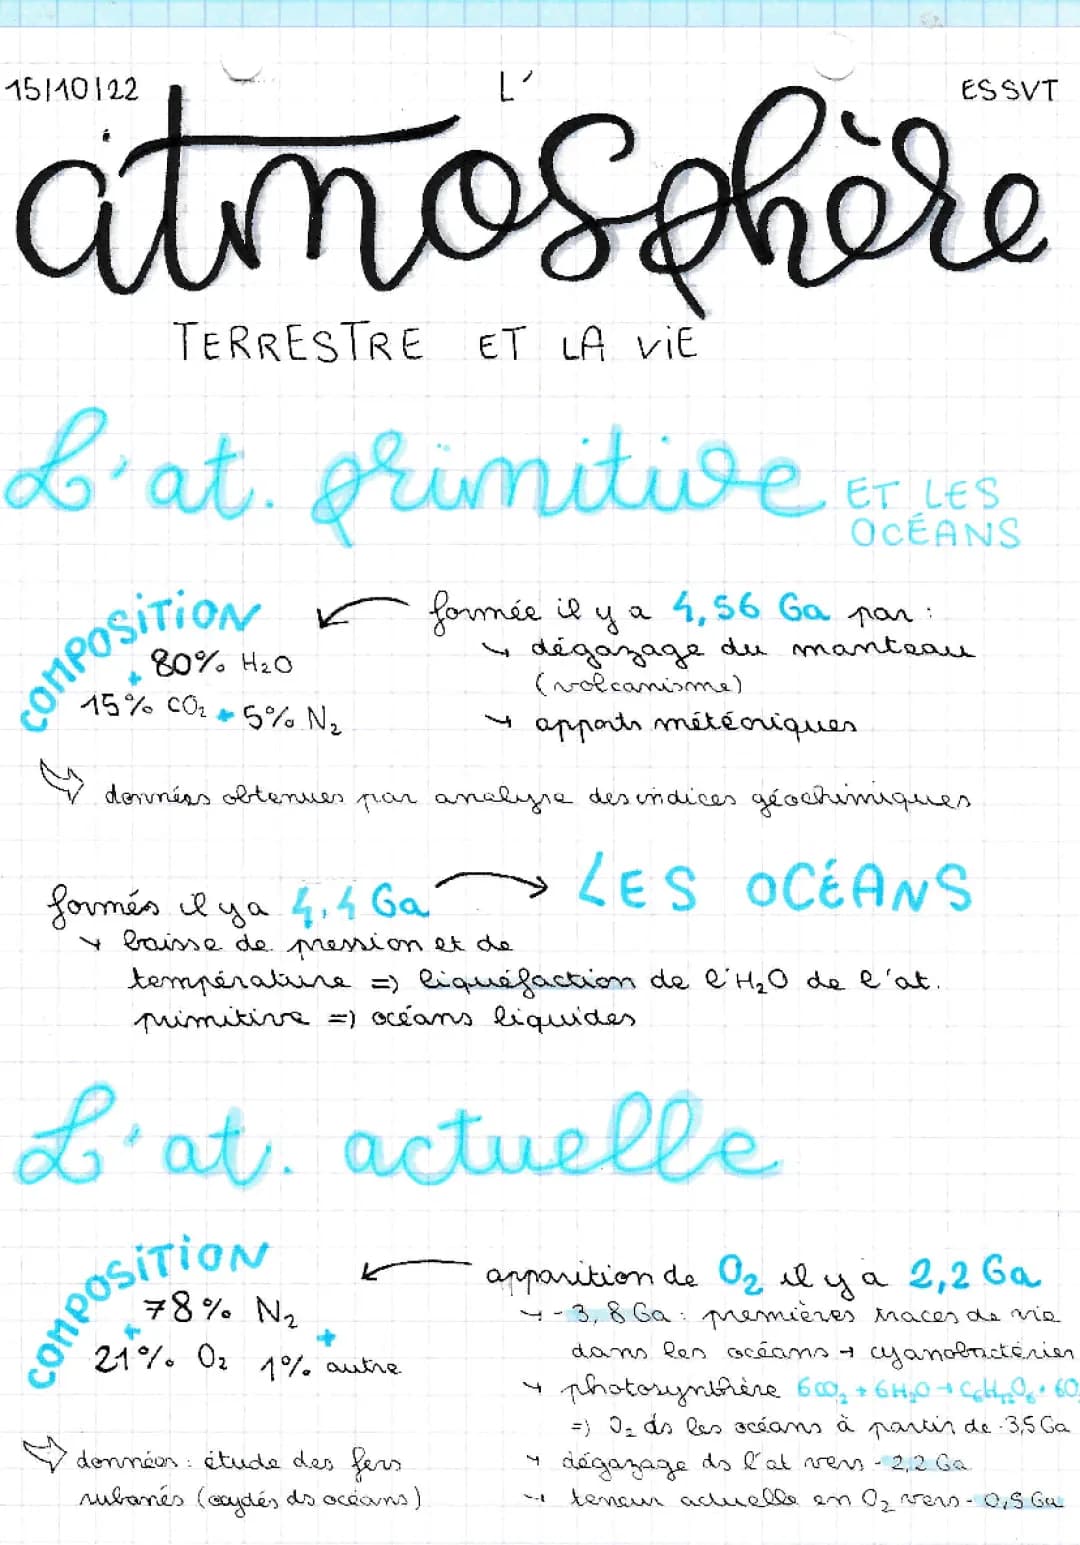 15/10/22
L'
ES SVT
atmosphère
TERRESTRE ET LA ViE
L'at. primitive ET LES
OCÉANS
COMPOSITiON
80% H₂O
+
15% CO₂ + 5% N₂
formée il y a 4,56 Ga par :
↳ dégazage du manteau
(volcanisme)
↳ apports météoriques
⇨ données obtenues par analyse des indices géochimiques
formés il y a 4,4 Ga → LES OCÉANS
↳ baisse de pression et de
température => liquéfaction de l'H₂O de l'at.
primitive => océans liquides
L'at. actuelle
COMPOSITiON
78% N₂
+ +
21% O₂ 1% autre
⇨ données : étude des fers
rubanés (oxydés ds océans)
apparition de O₂ il y a 2,2 Ga
↳ -3,8 Ga : premières traces de vie
dans les océans → cyanobactéries
↳ photosynthèse 6CO₂ + 6H₂O → C₆H₁₂O₆ + 6O
=> O₂ ds les océans à partir de -3,5 Ga
↳ dégazage ds l'at vers -2,2 Ga
↳ teneur actuelle en O₂ vers - Ga